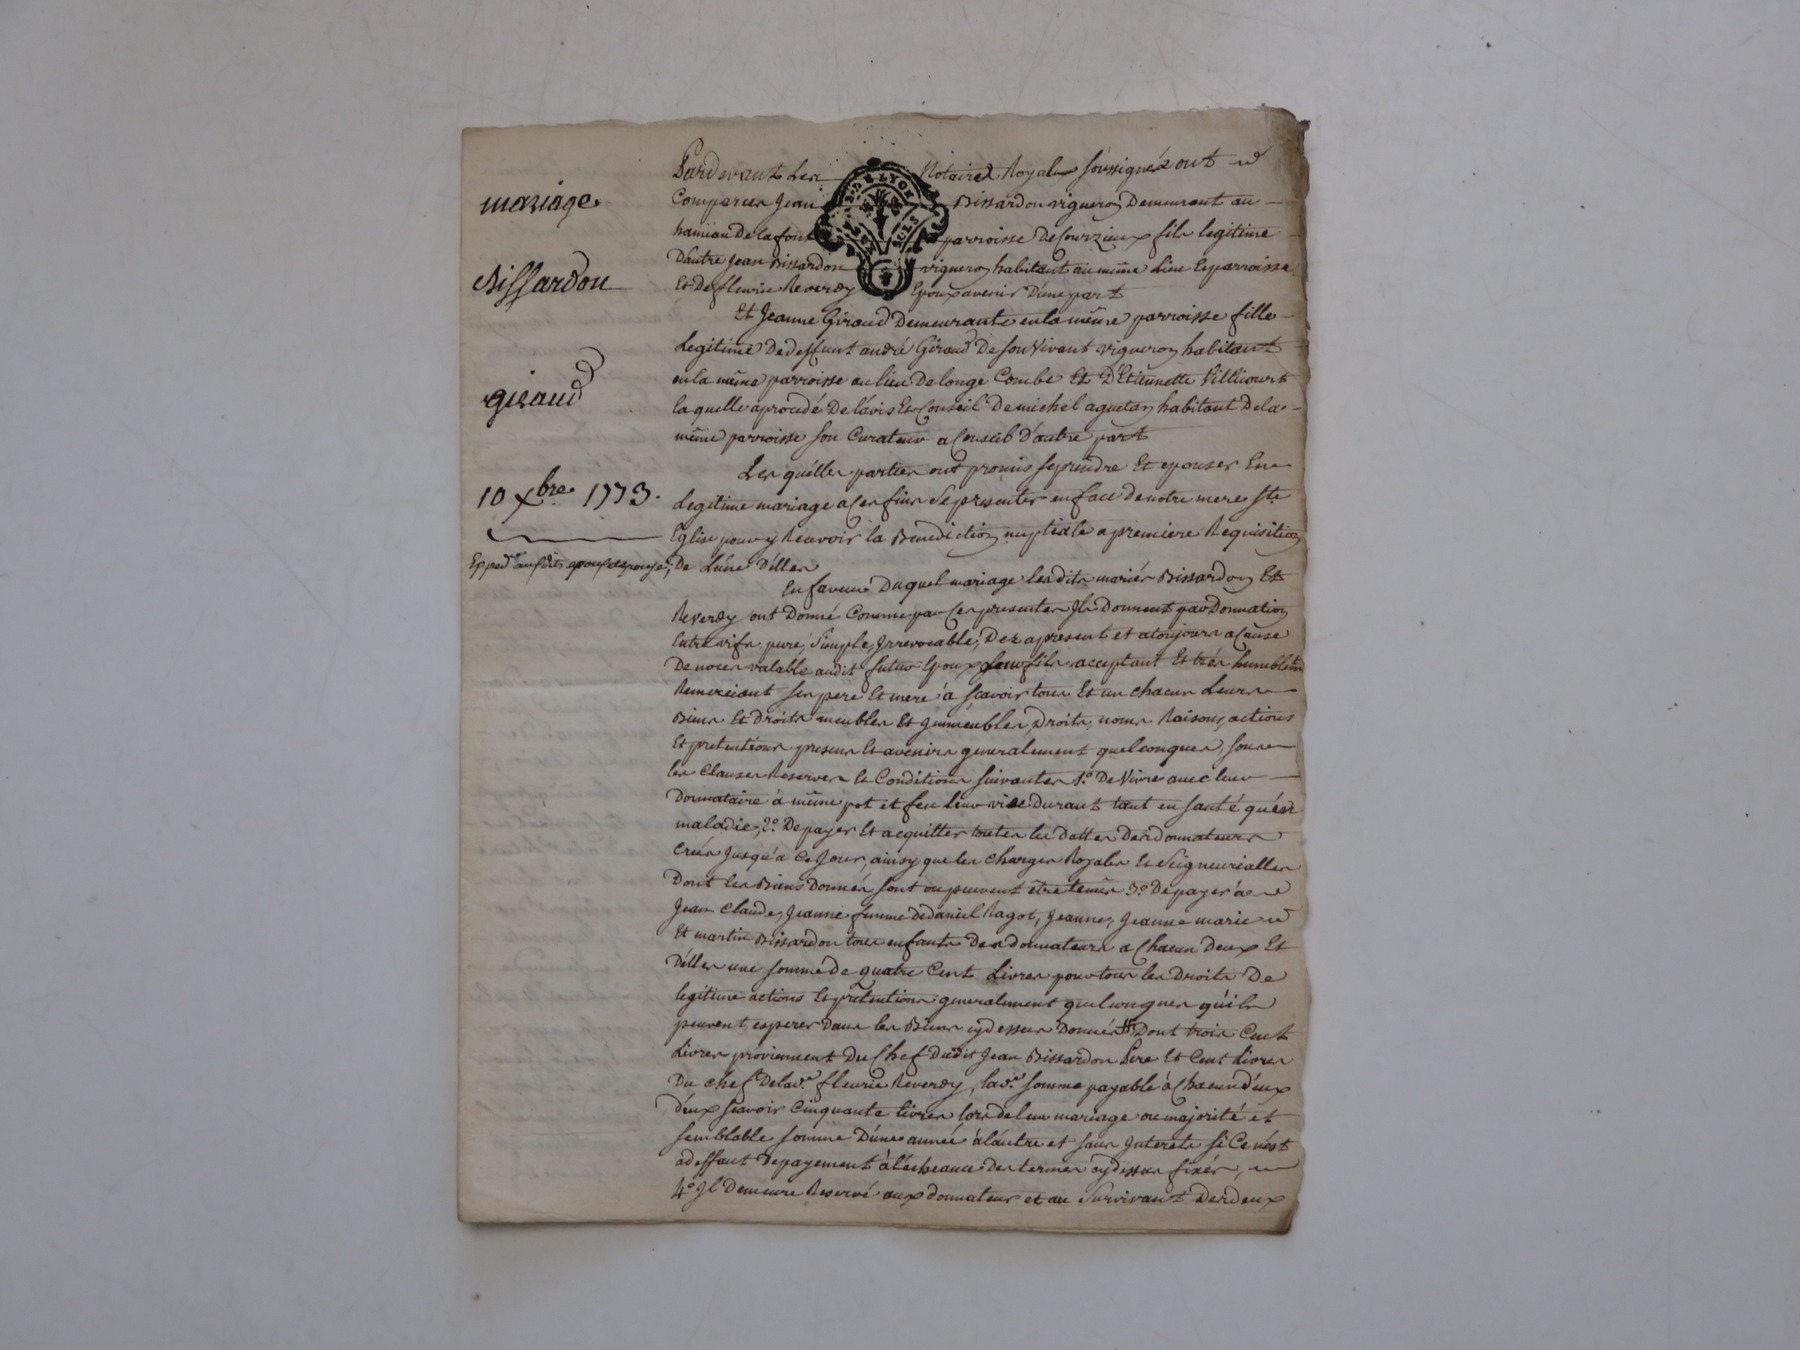 mariage
Bissardon
giraud
10 xbre. 1773.
Expedié auxdits epoux & epouse;
Pardevant Les Notaires Royaux soussignés ont
Comparus Jean Bissardon vigneron Demeurant au
hamiau De la font parroisse De Courzieux fils legitime
D'autre Jean Bissardon vigneron habitant au même Lieu Et parroisse
Et De fleurie Reverdy Epoux avenir D'une part
Et Jeanne Giraud Demeurante en la même parroisse fille
Legitime De deffunt andré Giraud De son Vivant vigneron habitant
en la même parroisse au lieu De longe Combe Et D'Etiennette Villicourt
la quelle aprocdé De l'avis Et Conseil De michel aguetan habitant De la
même parroisse son Curateur a Conseil D'autre part
Les quelles parties ont promis se prendre Et epouser En
Legitime mariage a Ces fins Se presenter en face De notre mere Ste
Eglise pour y Recevoir la Benediction nuptiale a premiere Requisition
De L'une D'elles
En faveur Du quel mariage lesdits mariés Bissardon Et
Reverdy ont Donné Comme par Ces presentes Ils Donnent par Donnation
Entre vifs, pure, Simple, Irrevocable, Dez apresent et atoujours a Cause
De noces valable audit futur Epoux Leur fils acceptant Et trés humblemt
Remerciant ses pere Et mere á scavoir tous Et un chacun Leurs
Biens Et Droits meubles Et Immeubles, Droits, noms Raisons, actions
Et pretentions presens Et avenirs generalement quelconques, sous
les Clauses Reserves Et Conditions suivantes 1.º De Vivre avec leur
Donnataire á même pot et feu leur vie Durant tant en santé qu'en
maladie, 2.º De payer Et acquitter toutes les dettes Des donnateurs
Créés Jusqu'a Ce Jour, ainsy que les Charges Royales Et Seigneurialles
Dont les Biens Donnés sont ou peuvent être tenus 3.º De payer á
Jean Claude, Jeanne femme de Daniel Ragot, Jeanne, Jeanne marie
Et martin Bissardon tous enfants Des donnateurs a Chacun Deux Et
D'elles une somme De quatre Cent Livres pour tous les Droits De
legitime actions Et prétentions generalement quelconques qu'ils
peuvent esperer Dans les Biens cydessus Donnés # Dont trois Cent
Livres proviennent Du Chef Dudit Jean Bissardon Pere Et Cent Livres
Du chef De lad.e fleurie Reverdy, lad.e somme payable á Chacun d'eux
d'eux scavoir Cinquante livres lors de leur mariage ou majorité et
semblable somme D'une année á l'autre et sans Interets si Ce n'est
a deffaut De payement á l'écheance Des termes cydessus fixés,
4.º Il Demeure Reservé aux donnateurs et au Survivant Des deux